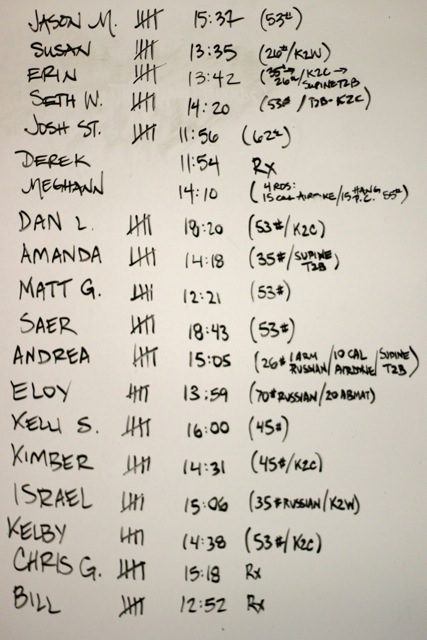 JASON M. 15:37 (53#)
SUSAN 13:35 (26#/K2W)
ERIN 13:42 (35#→ 26#/K2C → SUPINE T2B)
SETH W. 14:20 (53#/T2B-K2C)
JOSH ST. 11:56 (62#)
DEREK 11:54 Rx
MEGHANN 14:10 (4 RDS: 15 CAL AIRDYNE/15 HANG P.C. 55#)
DAN L. 18:20 (53#/K2C)
AMANDA 14:18 (35#/SUPINE T2B)
MATT G. 12:21 (53#)
SAER 18:43 (53#)
ANDREA 15:05 (26# 1 ARM RUSSIAN/10 CAL AIRDYNE/SUPINE T2B)
ELOY 13:59 (70# RUSSIAN/20 ABMAT)
KELLI S. 16:00 (45#)
KIMBER 14:31 (45#/K2C)
ISRAEL 15:06 (35# RUSSIAN/K2W)
KELBY 14:38 (53#/K2C)
CHRIS G. 15:18 Rx
BILL 12:52 Rx